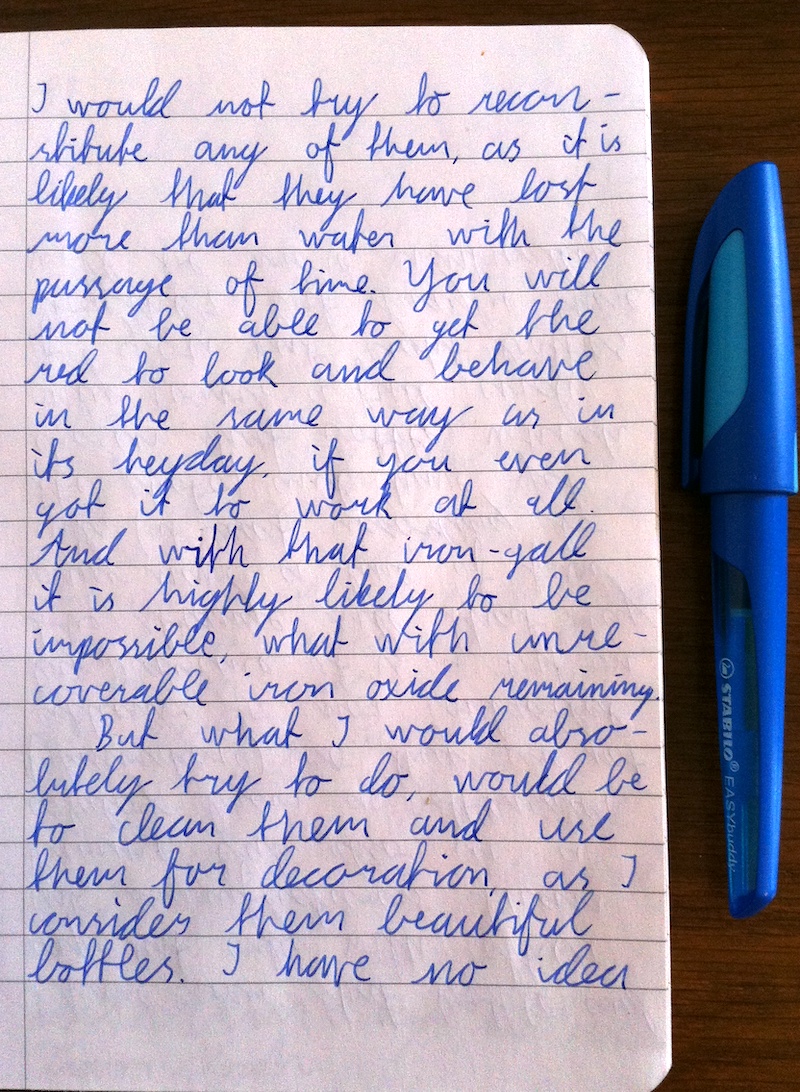 I would not try to recon-
stitute any of them, as it is
likely that they have lost
more than water with the
passage of time. You will
not be able to get the
red to look and behave
in the same way as in
its heyday, if you even
got it to work at all.
And with that iron-gall
it is highly likely to be
impossible, what with unre-
coverable iron oxide remaining.
But what I would abso-
lutely try to do, would be
to clean them and use
them for decoration, as I
consider them beautiful
bottles. I have no idea
STABILO® EASYbuddy